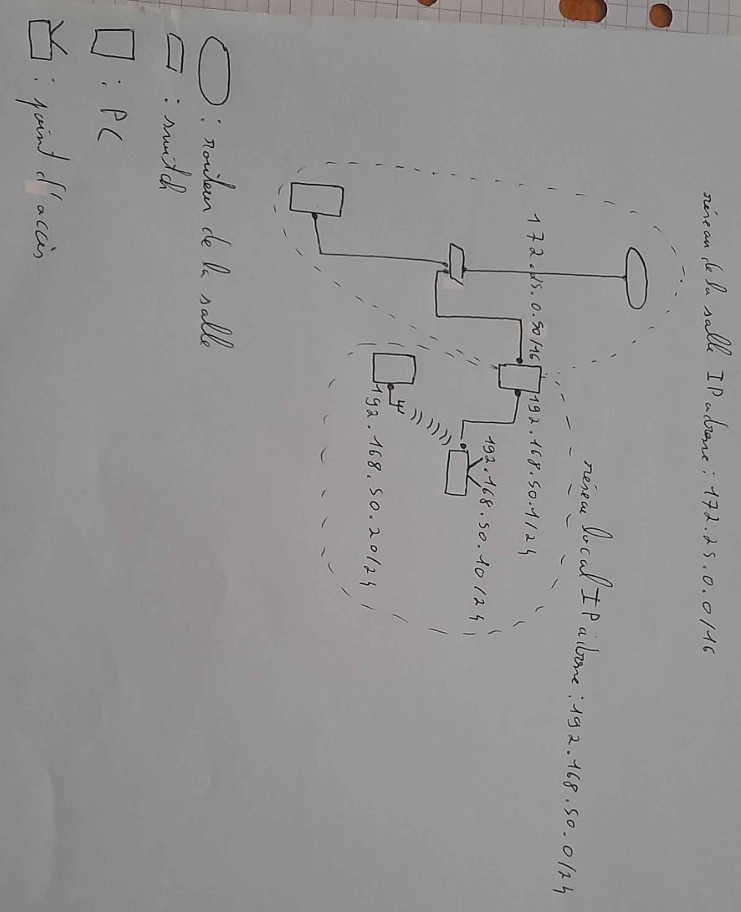 réseau de la salle IP adresse : 172.25.0.0/16
réseau local IP adresse : 192.168.50.0/24
172.25.0.50/16
192.168.50.1/24
192.168.50.10/24
192.168.50.20/24
: routeur de la salle
: switch
: PC
: point d'accès